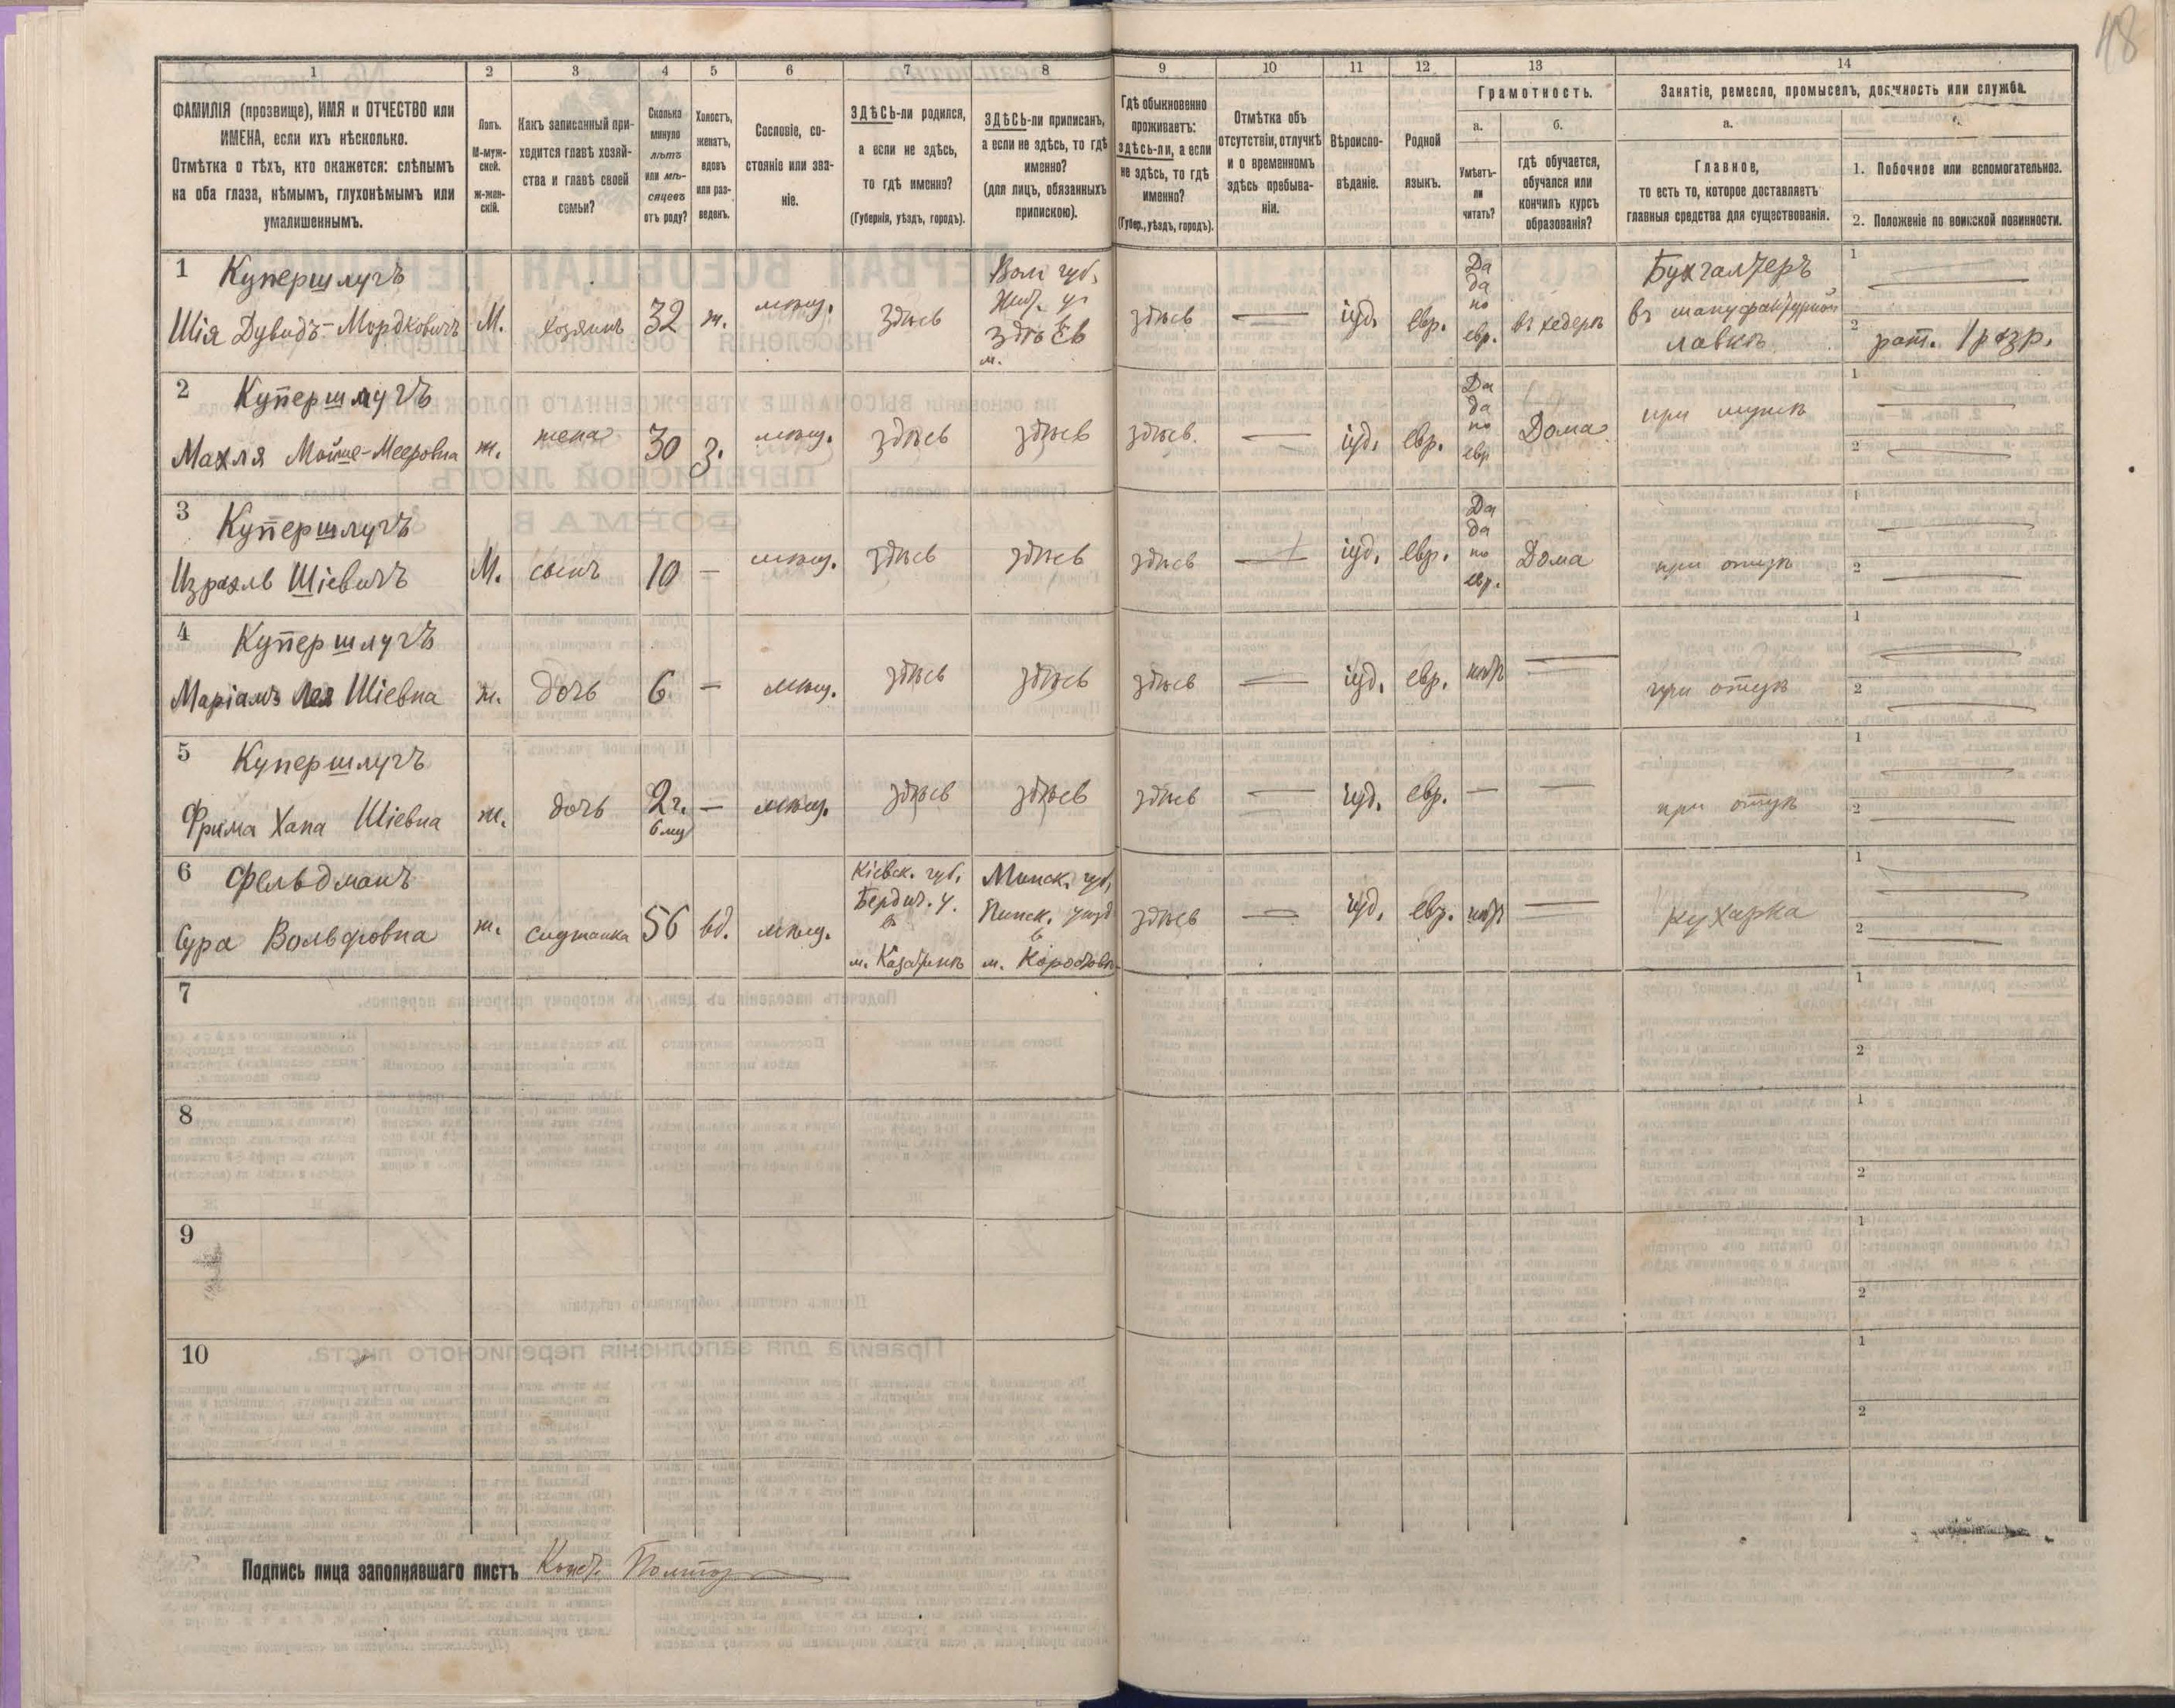 48
1
2
3
4
5
6
7
8
9
10
11
12
13
14
ФАМИЛІЯ (прозвище), ИМЯ и ОТЧЕСТВО или
ИМЕНА, если ихъ нѣсколько.
Отмѣтка о тѣхъ, кто окажется: слѣпымъ
на оба глаза, нѣмымъ, глухонѣмымъ или
умалишеннымъ.
Полъ.
М-муж-
ской.
ж-жен-
скій.
Какъ записанный при-
ходится главѣ хозяй-
ства и главѣ своей
семьи?
Сколько
минуло
лѣтъ
или мѣ-
сяцевъ
отъ роду?
Холостъ,
женатъ,
вдовъ
или раз-
веденъ.
Сословіе, со-
стояніе или зва-
ніе.
ЗДѢСЬ-ли родился,
а если не здѣсь,
то гдѣ именно?
(Губернія, уѣздъ, городъ).
ЗДѢСЬ-ли приписанъ,
а если не здѣсь, то гдѣ
именно?
(для лицъ, обязанныхъ
припискою).
Гдѣ обыкновенно
проживаетъ:
здѣсь-ли, а если
не здѣсь, то гдѣ
именно?
(Губер., уѣздъ, городъ).
Отмѣтка объ
отсутствіи, отлучкѣ
и о временномъ
здѣсь пребыва-
ніи.
Вѣроиспо-
вѣданіе.
Родной
языкъ.
Грамотность.
а.
Умѣетъ-
ли
читать?
б.
гдѣ обучается,
обучался или
кончилъ курсъ
образованія?
Занятіе, ремесло, промыселъ, должность или служба.
а.
Главное,
то есть то, которое доставляетъ
главныя средства для существованія.
1. Побочное или вспомогательное.
2. Положеніе по воинской повинности.
1 Купершлугъ
Шія Дувидъ-Мордковичъ М. хозяинъ 32 ж. мѣщ. здѣсь
Вол. губ.
Жит. у.
здѣсь
м.
здѣсь — іуд. евр.
Да
да
по
евр.
въ хедерѣ
Бухгалтеръ
въ мануфактурной
лавкѣ
1 —
2 рат. 1 разр.
2 Купершлугъ
Махля Мойше-Мееровна ж. жена 30 з. мѣщ. здѣсь здѣсь здѣсь. — іуд. евр.
Да
да
по
евр
Дома при мужѣ
1 —
2 —
3 Купершлугъ
Израэль Шіевичъ М. сынъ 10 — мѣщ. здѣсь здѣсь здѣсь — іуд. евр.
Да
да
по
евр.
Дома при отцѣ
1 —
2 —
4 Купершлугъ
Маріамъ Лея Шіевна ж. дочь 6 — мѣщ. здѣсь здѣсь здѣсь — іуд. евр. нѣтъ — при отцѣ
1 —
2 —
5 Купершлугъ
Фрима Хана Шіевна ж. дочь 2 г. — мѣщ. здѣсь здѣсь здѣсь — іуд. евр. — — при отцѣ
6 мц
1 —
2 —
6 Фельдманъ
Сура Вольфовна ж. служанка 56 вд. мѣщ.
Кіевск. губ.
Бердич. у.
въ
м. Казатинѣ
Минск. губ.
Пинск. уѣзд
в
м.
здѣсь — іуд. евр. нѣтъ — кухарка
1 —
2 —
7
1
2
8
1
2
9
1
2
10
1
2
Подпись лица заполнявшаго листъ